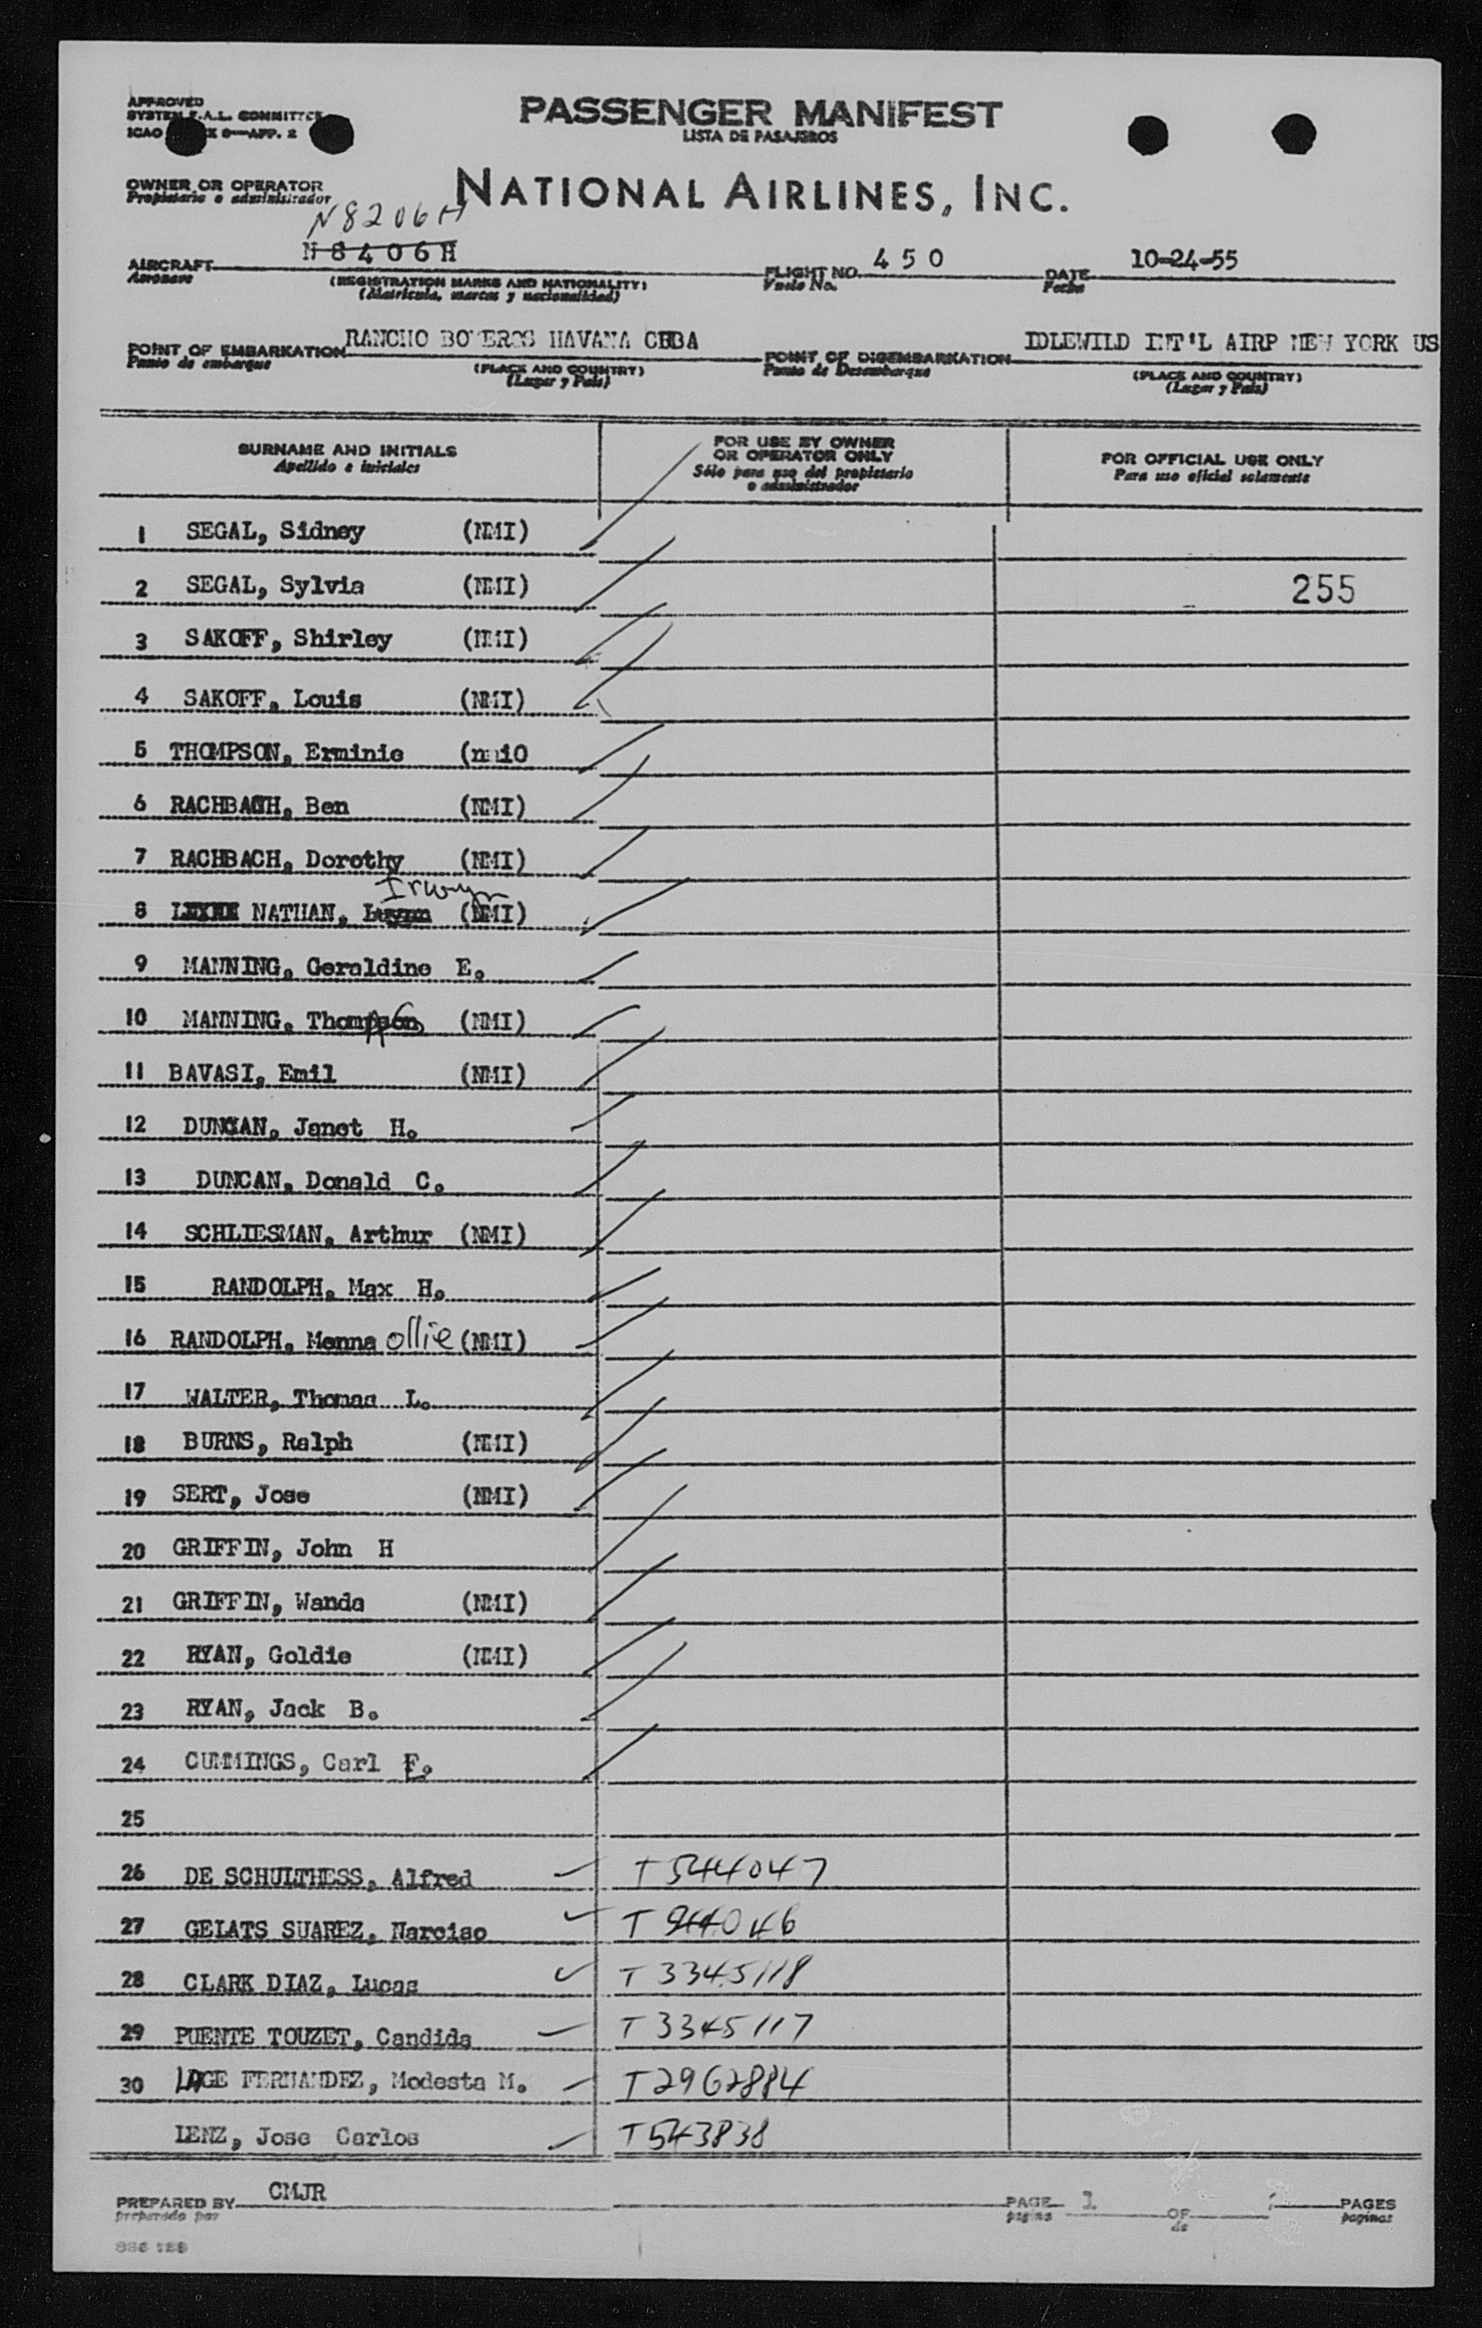 APPROVED
SYSTEM F.A.L. COMMITTEE
ICAO 9—APP. 2
PASSENGER MANIFEST
LISTA DE PASAJEROS
OWNER OR OPERATOR
Propietario o administrador
NATIONAL AIRLINES, INC.
N8206H
AIRCRAFT N8406H
Aeronave
(REGISTRATION MARKS AND NATIONALITY)
(Matricula, marcas y nacionalidad)
FLIGHT NO. 450
Vuelo No.
DATE 10-24-55
Fecha
POINT OF EMBARKATION RANCHO BOYEROS HAVANA CUBA
Punto de embarque
(PLACE AND COUNTRY)
(Lugar y País)
POINT OF DISEMBARKATION IDLEWILD INT'L AIRP NEW YORK US
Punto de Desembarque
(PLACE AND COUNTRY)
(Lugar y País)
SURNAME AND INITIALS
Apellido e iniciales
FOR USE BY OWNER
OR OPERATOR ONLY
Sólo para uso del propietario
o administrador
FOR OFFICIAL USE ONLY
Para uso oficial solamente
1 SEGAL, Sidney (NMI)
2 SEGAL, Sylvia (NMI) 255
3 SAKOFF, Shirley (NMI)
4 SAKOFF, Louis (NMI)
5 THOMPSON, Erminie (nmi0
6 RACHBACH, Ben (NMI)
7 RACHBACH, Dorothy (NMI)
Irwyn
8 NATHAN, (NMI)
9 MANNING, Geraldine E.
10 MANNING, Thompson (NMI)
11 BAVASI, Emil (NMI)
12 DUNCAN, Janet H.
13 DUNCAN, Donald C.
14 SCHLIESMAN, Arthur (NMI)
15 RANDOLPH, Max H.
16 RANDOLPH, Menna ollie (NMI)
17 WALTER, Thomas L.
18 BURNS, Ralph (NMI)
19 SERT, Jose (NMI)
20 GRIFFIN, John H
21 GRIFFIN, Wanda (NMI)
22 RYAN, Goldie (NMI)
23 RYAN, Jack B.
24 CUMMINGS, Carl E.
25
26 DE SCHULTHESS, Alfred T544047
27 GELATS SUAREZ, Narciso T 544046
28 CLARK DIAZ, Lucas T 3345118
29 PUENTE TOUZET, Candida T 3345117
30 LAGE FERNANDEZ, Modesta M. T2962884
LENZ, Jose Carlos T543838
PREPARED BY CMJR
preparado por
PAGE 1 OF PAGES
página de paginas